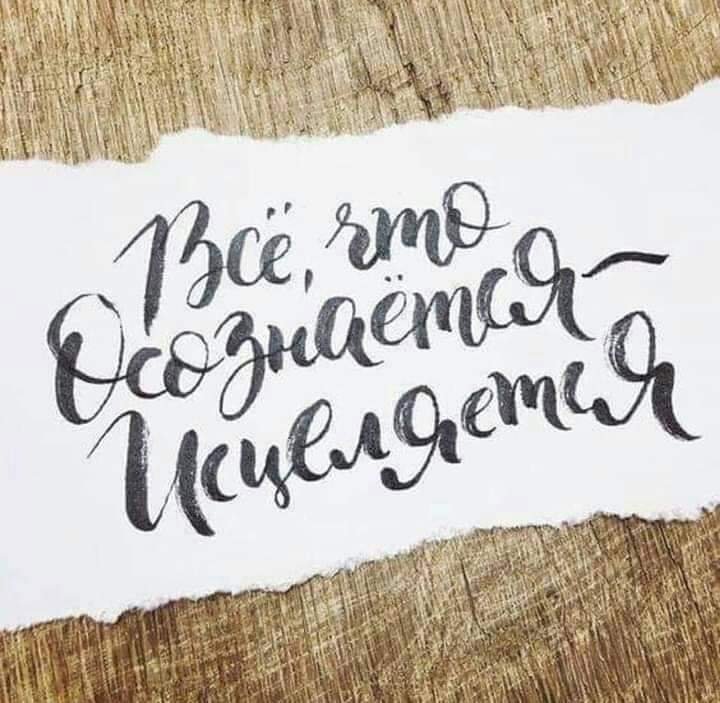 Всё, что
Осознаётся —
Исцеляется